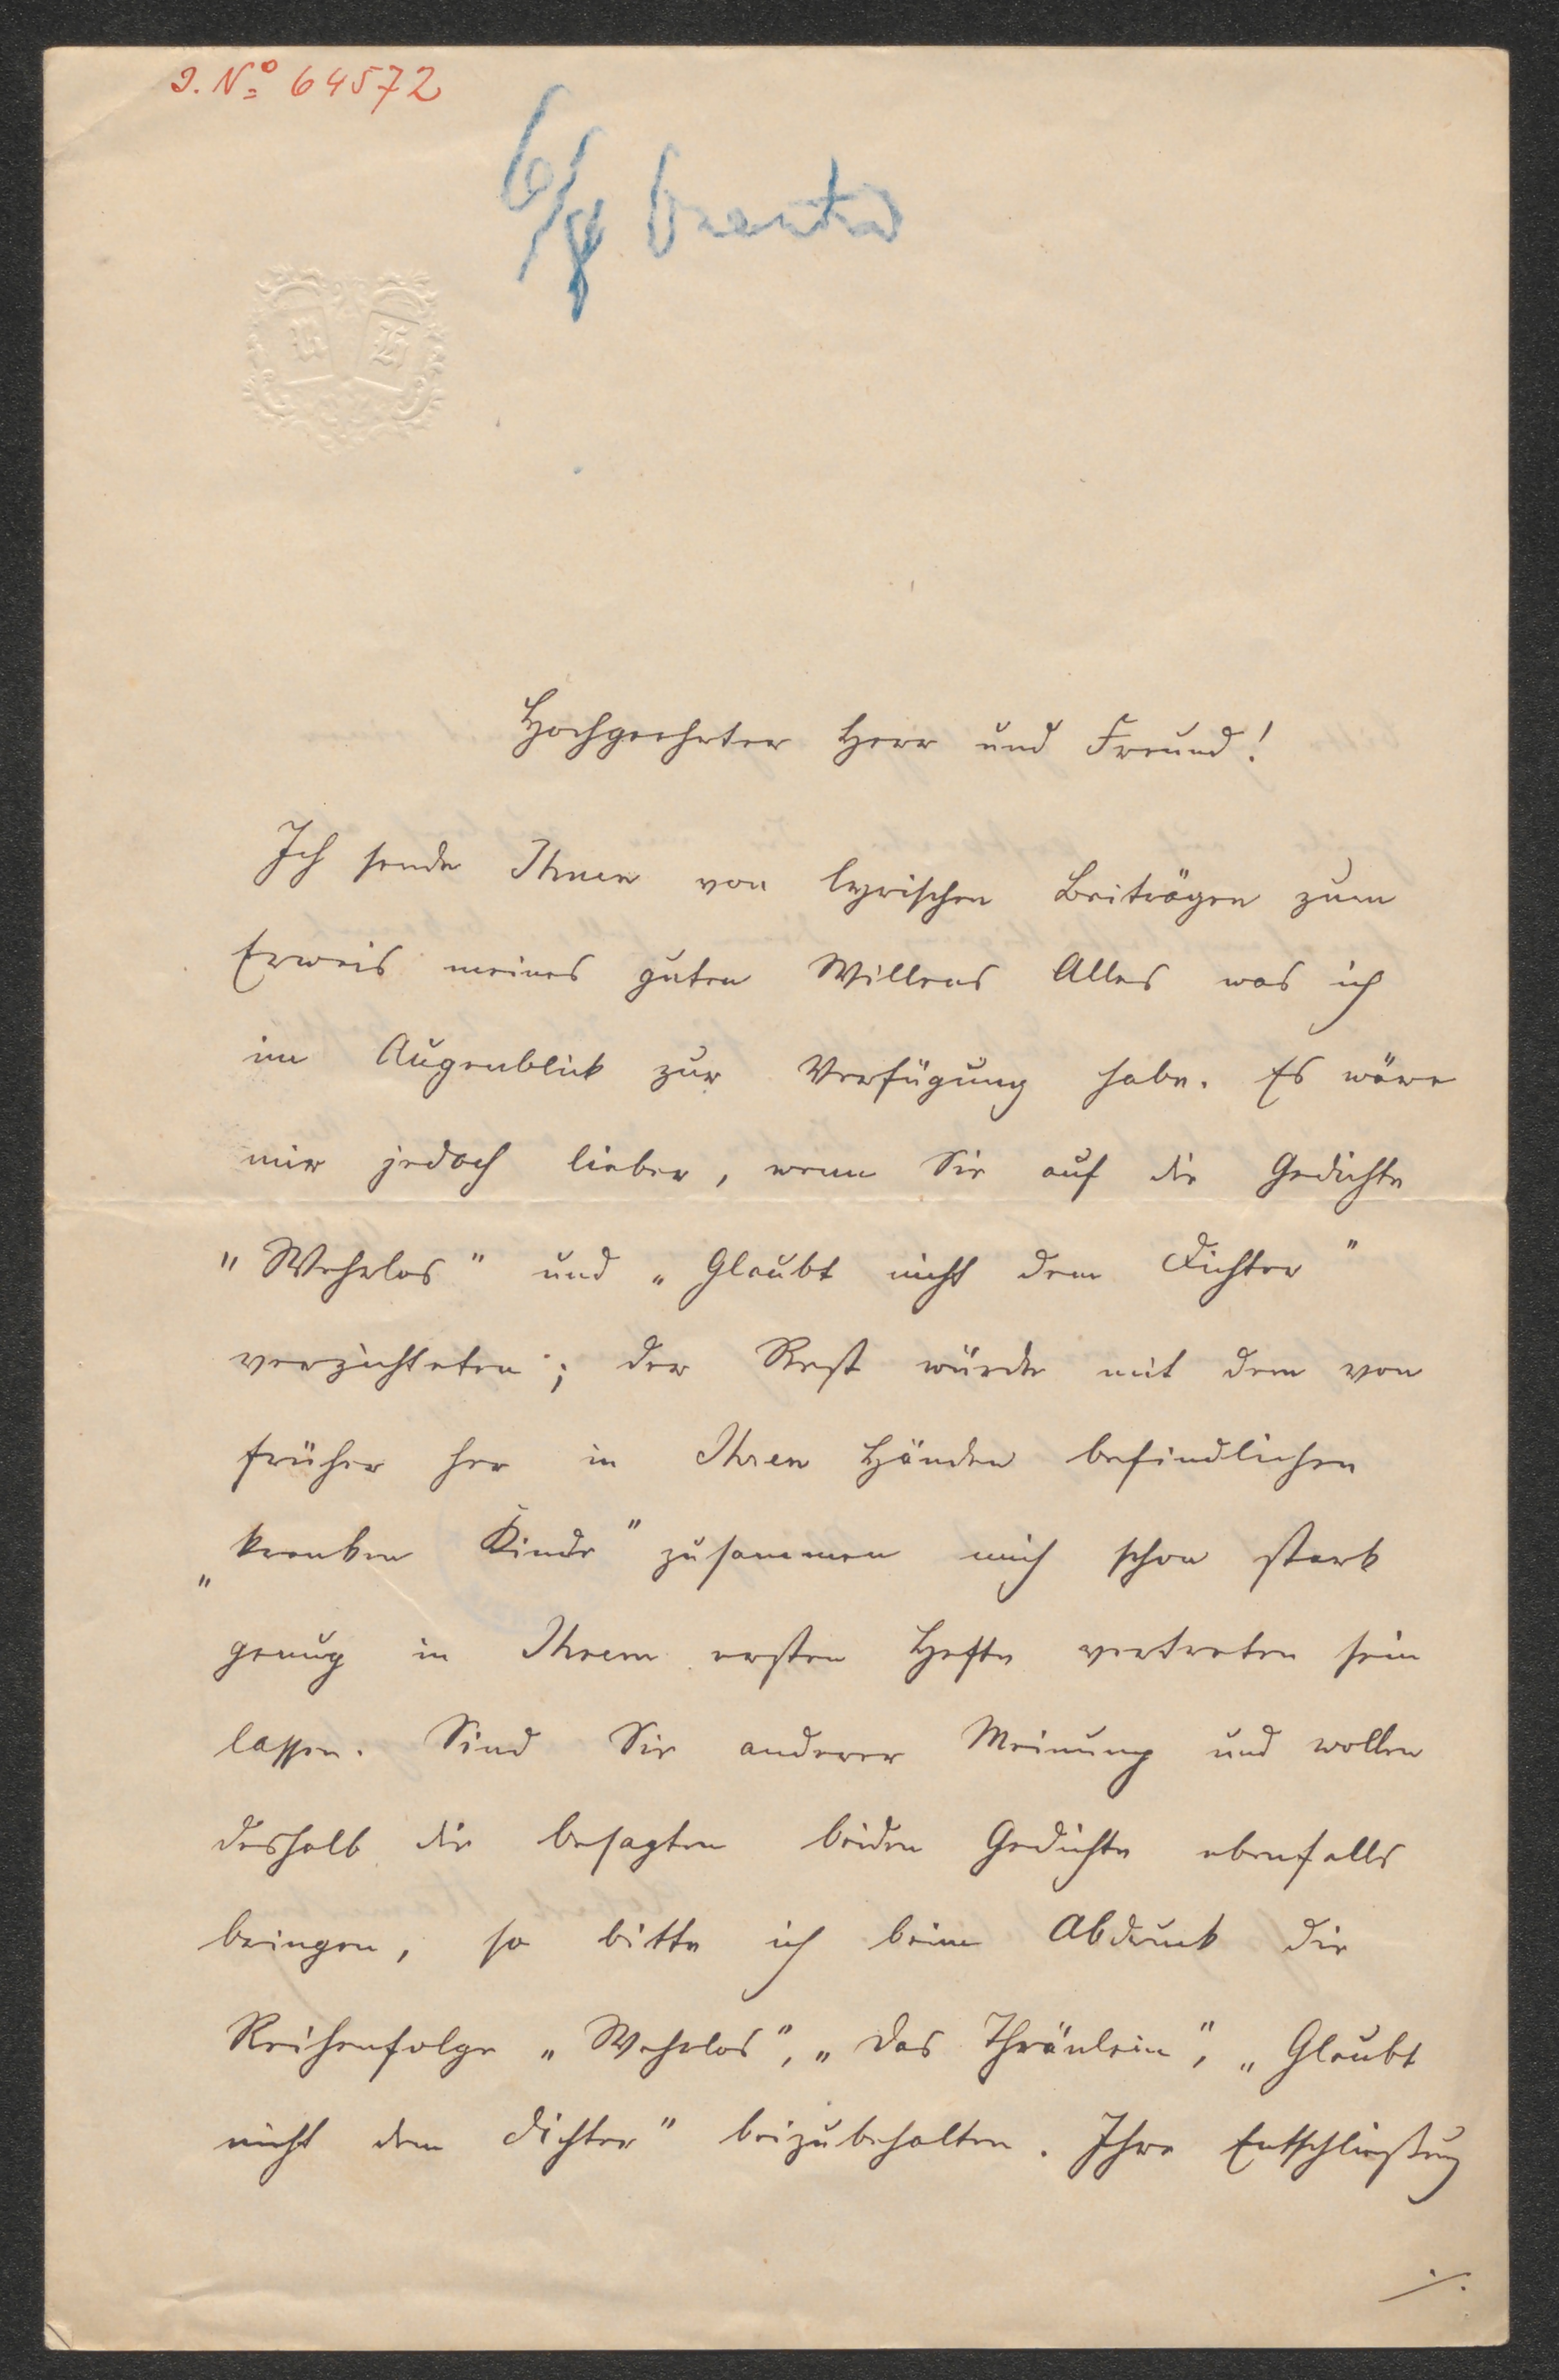 J. No 64572
6/8
Hochgeehrter Herr und Freund!
Ich sende Ihnen von lyrischen Beiträgen zum
Erweis meines guten Willens Alles was ich
im Augenblick zur Verfügung habe. Es wäre
mir jedoch lieber, wenn Sie auf die Gedichte
"Wehrlos" und "Glaubt nicht dem Dichter"
verzichteten; der Rest würde mit dem von
früher her in Ihren Händen befindlichen
"kranken Kinde" zusammen mich schon stark
genug in Ihrem ersten Hefte vertreten sein
lassen. Sind Sie anderer Meinung und wollen
deshalb die besagten beiden Gedichte ebenfalls
bringen, so bitte ich beim Abdruck die
Reihenfolge "Wehrlos", "Das Thränlein", "Glaubt
nicht dem Dichter" beizubehalten. Ihre Entschließung
./.